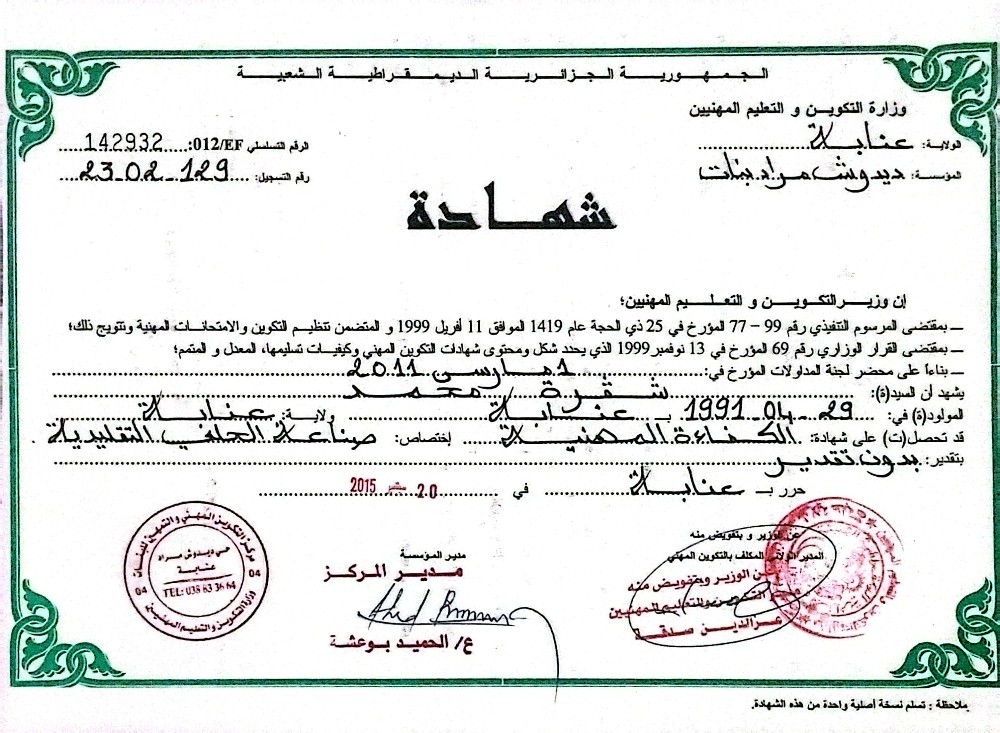 الجمهورية الجزائرية الديمقراطية الشعبية
وزارة التكوين و التعليم المهنيين
الولاية: عنابة
الرقم التسلسلي 012/EF: 142932
المؤسسة: ديدوش مراد بنات
رقم التسجيل: 23.02.129
شهادة
إن وزير التكوين و التعليم المهنيين؛
ــ بمقتضى المرسوم التنفيذي رقم 99 – 77 المؤرخ في 25 ذي الحجة عام 1419 الموافق 11 أفريل 1999 و المتضمن تنظيم التكوين والامتحانات المهنية وتتويج ذلك؛
ــ بمقتضى القرار الوزاري رقم 69 المؤرخ في 13 نوفمبر 1999 الذي يحدد شكل ومحتوى شهادات التكوين المهني وكيفيات تسليمها، المعدل و المتمم؛
ــ بناءا على محضر لجنة المداولات المؤرخ في: 1 مارس 2011
يشهد أن السيد(ة): شقرة محمد
المولود(ة) في: 29 04 1991 بـ عنابة ولاية: عنابة
قد تحصل(ت) على شهادة: الكفاءة المهنية إختصاص: صناعة الحلي التقليدية
بتقدير: بدون تقدير
حرر بـ عنابة في 20 2015
عن الوزير و بتفويض منه
المدير الولائي المكلف بالتكوين المهني
عن الوزير وبتفويض منه
مدير التكوين والتعليم المهنيين
عزالدين صدقة
مدير المؤسسة
مدير المركز
ع/ الحميد بوعشة
مركز التكوين المهني والتمهين للبنات
حي ديدوش مراد
عنابة
TEL: 038 83 36 64
04 04
وزارة التكوين و التعليم المهنيين
ملاحظة : تسلم نسخة أصلية واحدة من هذه الشهادة.